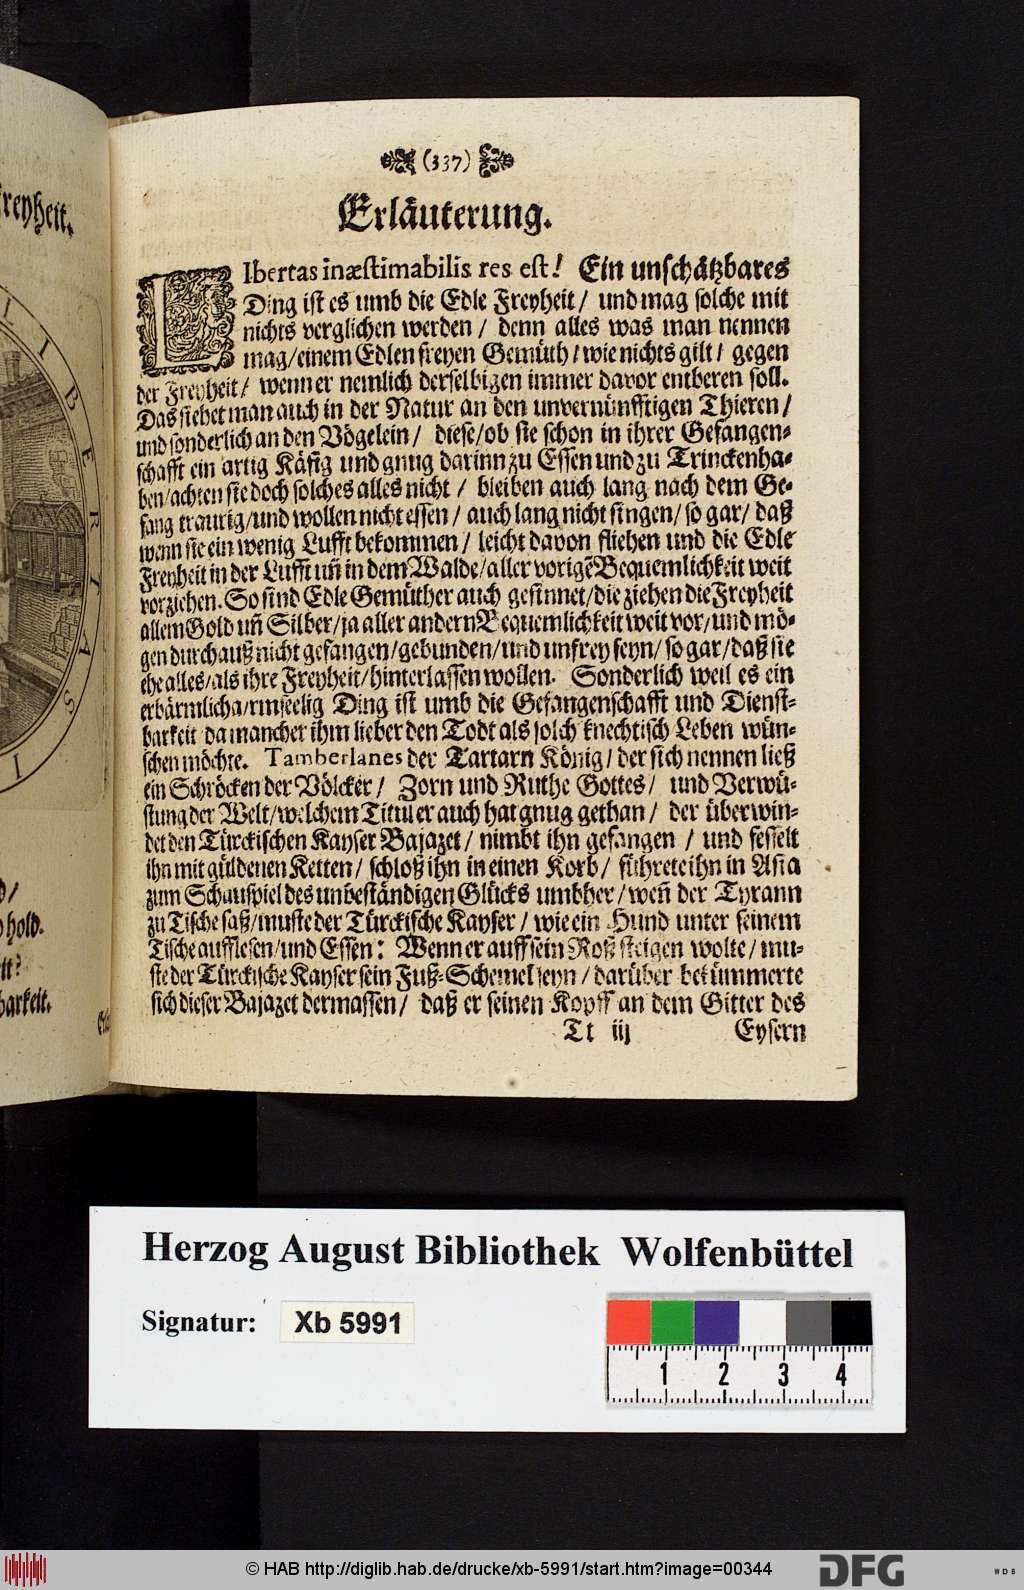 freyheit.
LIBERTAS I
hold.
barkeit.
(337)
Erläuterung.
LIbertas inæstimabilis res est! Ein unschätzbares
Ding ist es umb die Edle Freyheit / und mag solche mit
nichts verglichen werden / denn alles was man nennen
mag / einem Edlen freyen Gemüth / wie nichts gilt / gegen
der Freyheit / wenn er nemlich derselbigen immer davor entberen soll.
Das siehet man auch in der Natur an den unvernünfftigen Thieren /
und sonderlich an den Vögelein / diese / ob sie schon in ihrer Gefangen-
schafft ein artig Käfig und gnug darinn zu Essen und zu Trincken ha-
ben / achten sie doch solches alles nicht / bleiben auch lang nach dem Ge-
fang traurig / und wollen nicht essen / auch lang nicht singen / so gar / daß
wenn sie ein wenig Lufft bekommen / leicht davon fliehen und die Edle
Freyheit in der Lufft uñ in dem Walde / aller vorigẽ Bequemlichkeit weit
vorziehen. So sind Edle Gemüther auch gesinnet / die ziehen die Freyheit
allem Gold uñ Silber / ja aller andern Bequemlichkeit weit vor / und mö-
gen durchauß nicht gefangen / gebunden / und unfrey seyn / so gar / daß sie
ehe alles / als ihre Freyheit / hinterlassen wollen. Sonderlich weil es ein
erbärmlich armseelig Ding ist umb die Gefangenschafft und Dienst-
barkeit da mancher ihm lieber den Todt als solch knechtisch Leben wün-
schen möchte. Tamberlanes der Tartarn König / der sich nennen ließ
ein Schröcken der Völcker / Zorn und Ruthe Gottes / und Verwü-
stung der Welt / welchem Titul er auch hat gnug gethan / der überwin-
det den Türckischen Kayser Bajazet / nimbt ihn gefangen / und fesselt
ihn mit güldenen Ketten / schloß ihn in einen Korb / führete ihn in Asia
zum Schauspiel des unbeständigen Glücks umbher / weñ der Tyrann
zu Tische saß / muste der Türckische Kayser / wie ein Hund unter seinem
Tische aufflesen / und Essen: Wenn er auff sein Roß steigen wolte / mu-
ste der Türckische Kayser sein Fuß-Schemel seyn / darüber bekümmerte
sich dieser Bajazet dermassen / daß er seinen Kopff an dem Gitter des
Tt iij Eysern
Herzog August Bibliothek Wolfenbüttel
Signatur: Xb 5991
1 2 3 4
© HAB http://diglib.hab.de/drucke/xb-5991/start.htm?image=00344
DFG
WDB